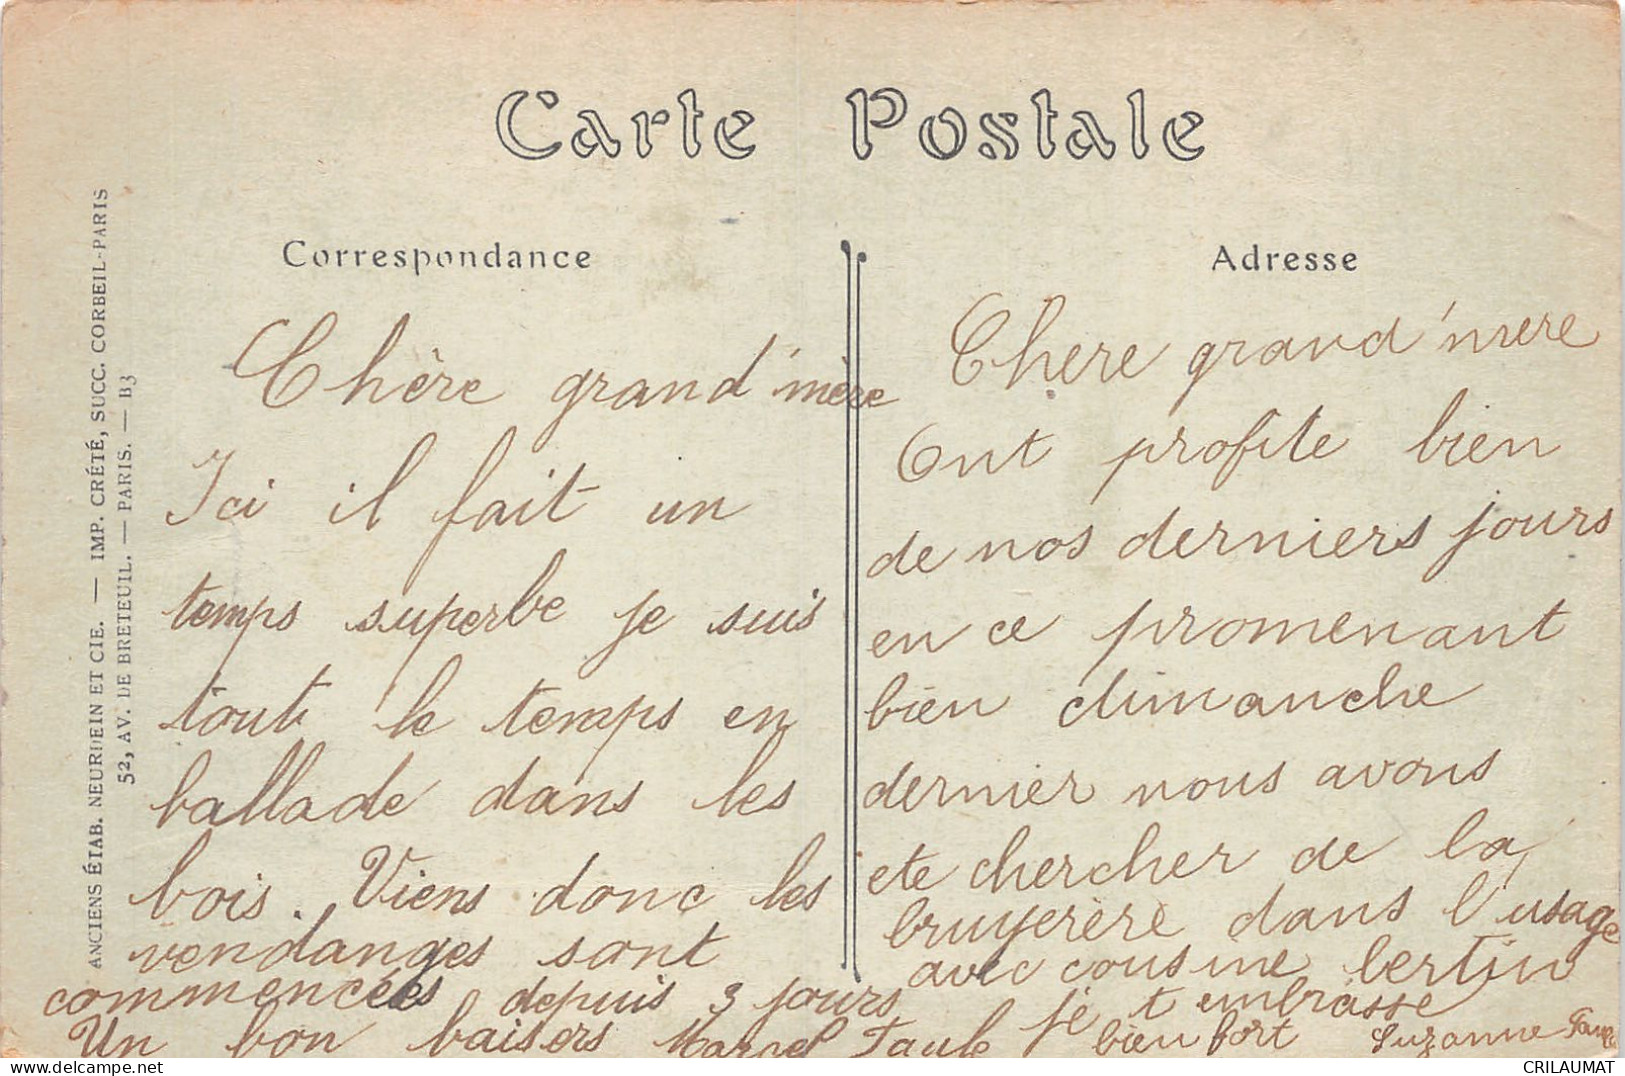 Carte Postale
Correspondance
Chère grand'mère
Ici il fait un
temps superbe je suis
tout le temps en
ballade dans les
bois. Viens donc les
vendanges sont
commencées depuis 3 jours
Un bon baisers Marcel Faule
Adresse
Chere grand'mere
Ont profite bien
de nos derniers jours
en ce promenant
bien dimanche
dernier nous avons
ete chercher de la
bruyerère dans l'usage
avec cousine bertin
je t embrasse
bien fort Suzanne
ANCIENS ÉTAB. NEURDEIN ET CIE. — IMP. CRÉTÉ, SUCC. CORBEIL-PARIS
52, AV. DE BRETEUIL. — PARIS. — B3
CRILAUMAT